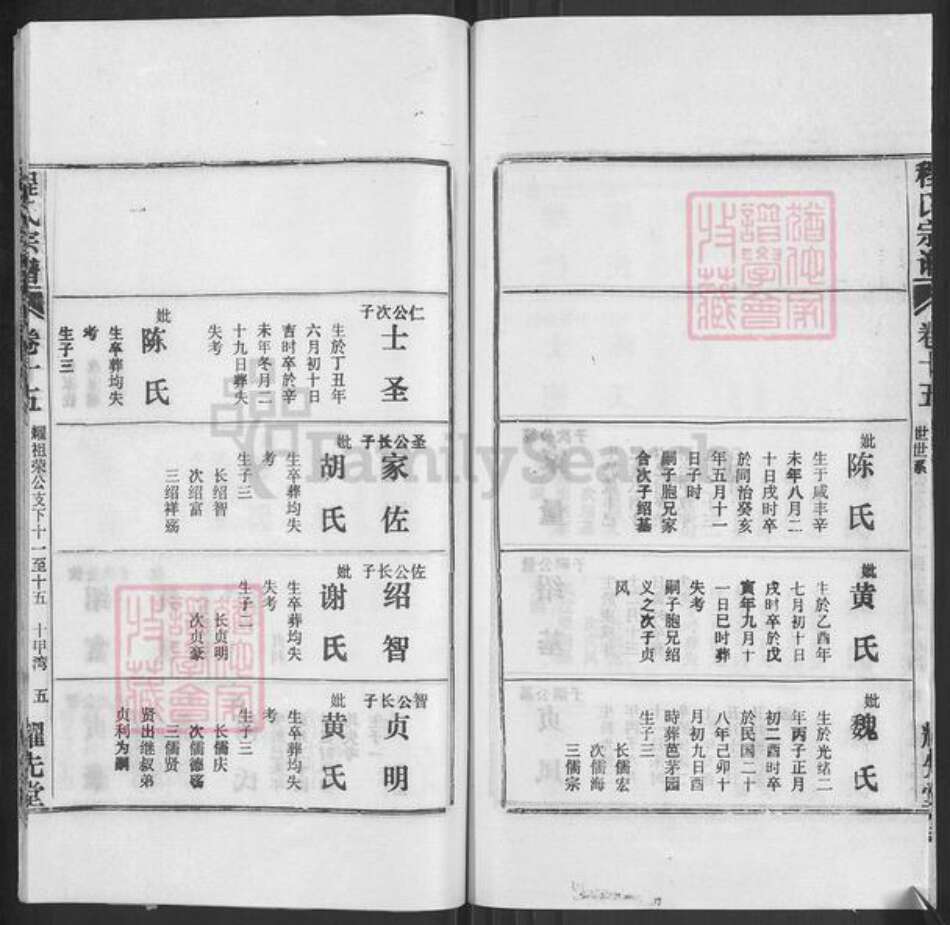 程氏宗谱
卷十五
世世系
妣
陈氏
生于咸丰辛
未年八月二
十日戌时卒
於同治癸亥
年五月十一
日子时
嗣子胞兄家
合次子绍基
妣
黄氏
生於乙酉年
七月初十日
戌时卒於戊
寅年九月十
一日巳时葬
失考
嗣子胞兄绍
义之次子贞
风
妣
魏氏
生於光绪二
年丙子正月
初二酉时卒
於民国二十
八年己卯十
月初九日酉
時葬芭茅园
生子三
长儒宏
次儒海
三儒宗
仁公次子
士圣
生於丁丑年
六月初十日
吉时卒於辛
未年冬月二
十九日葬失
失考
妣
陈氏
生卒葬均失
考
生子三
圣公长子
家佐
妣
胡氏
生卒葬均失
考
生子三
长绍智
次绍富
三绍祥殇
佐公长子
绍智
妣
谢氏
生卒葬均失
失考
生子二
长贞明
次贞豪
智公长子
贞明
妣
黄氏
生卒葬均失
考
生子三
长儒庆
次儒德殇
三儒贤
贤出继叔弟
贞利为嗣
程氏宗譜
卷十五
耀祖荣公支下十一至十五
十甲湾
五
耀先堂
FamilySearch